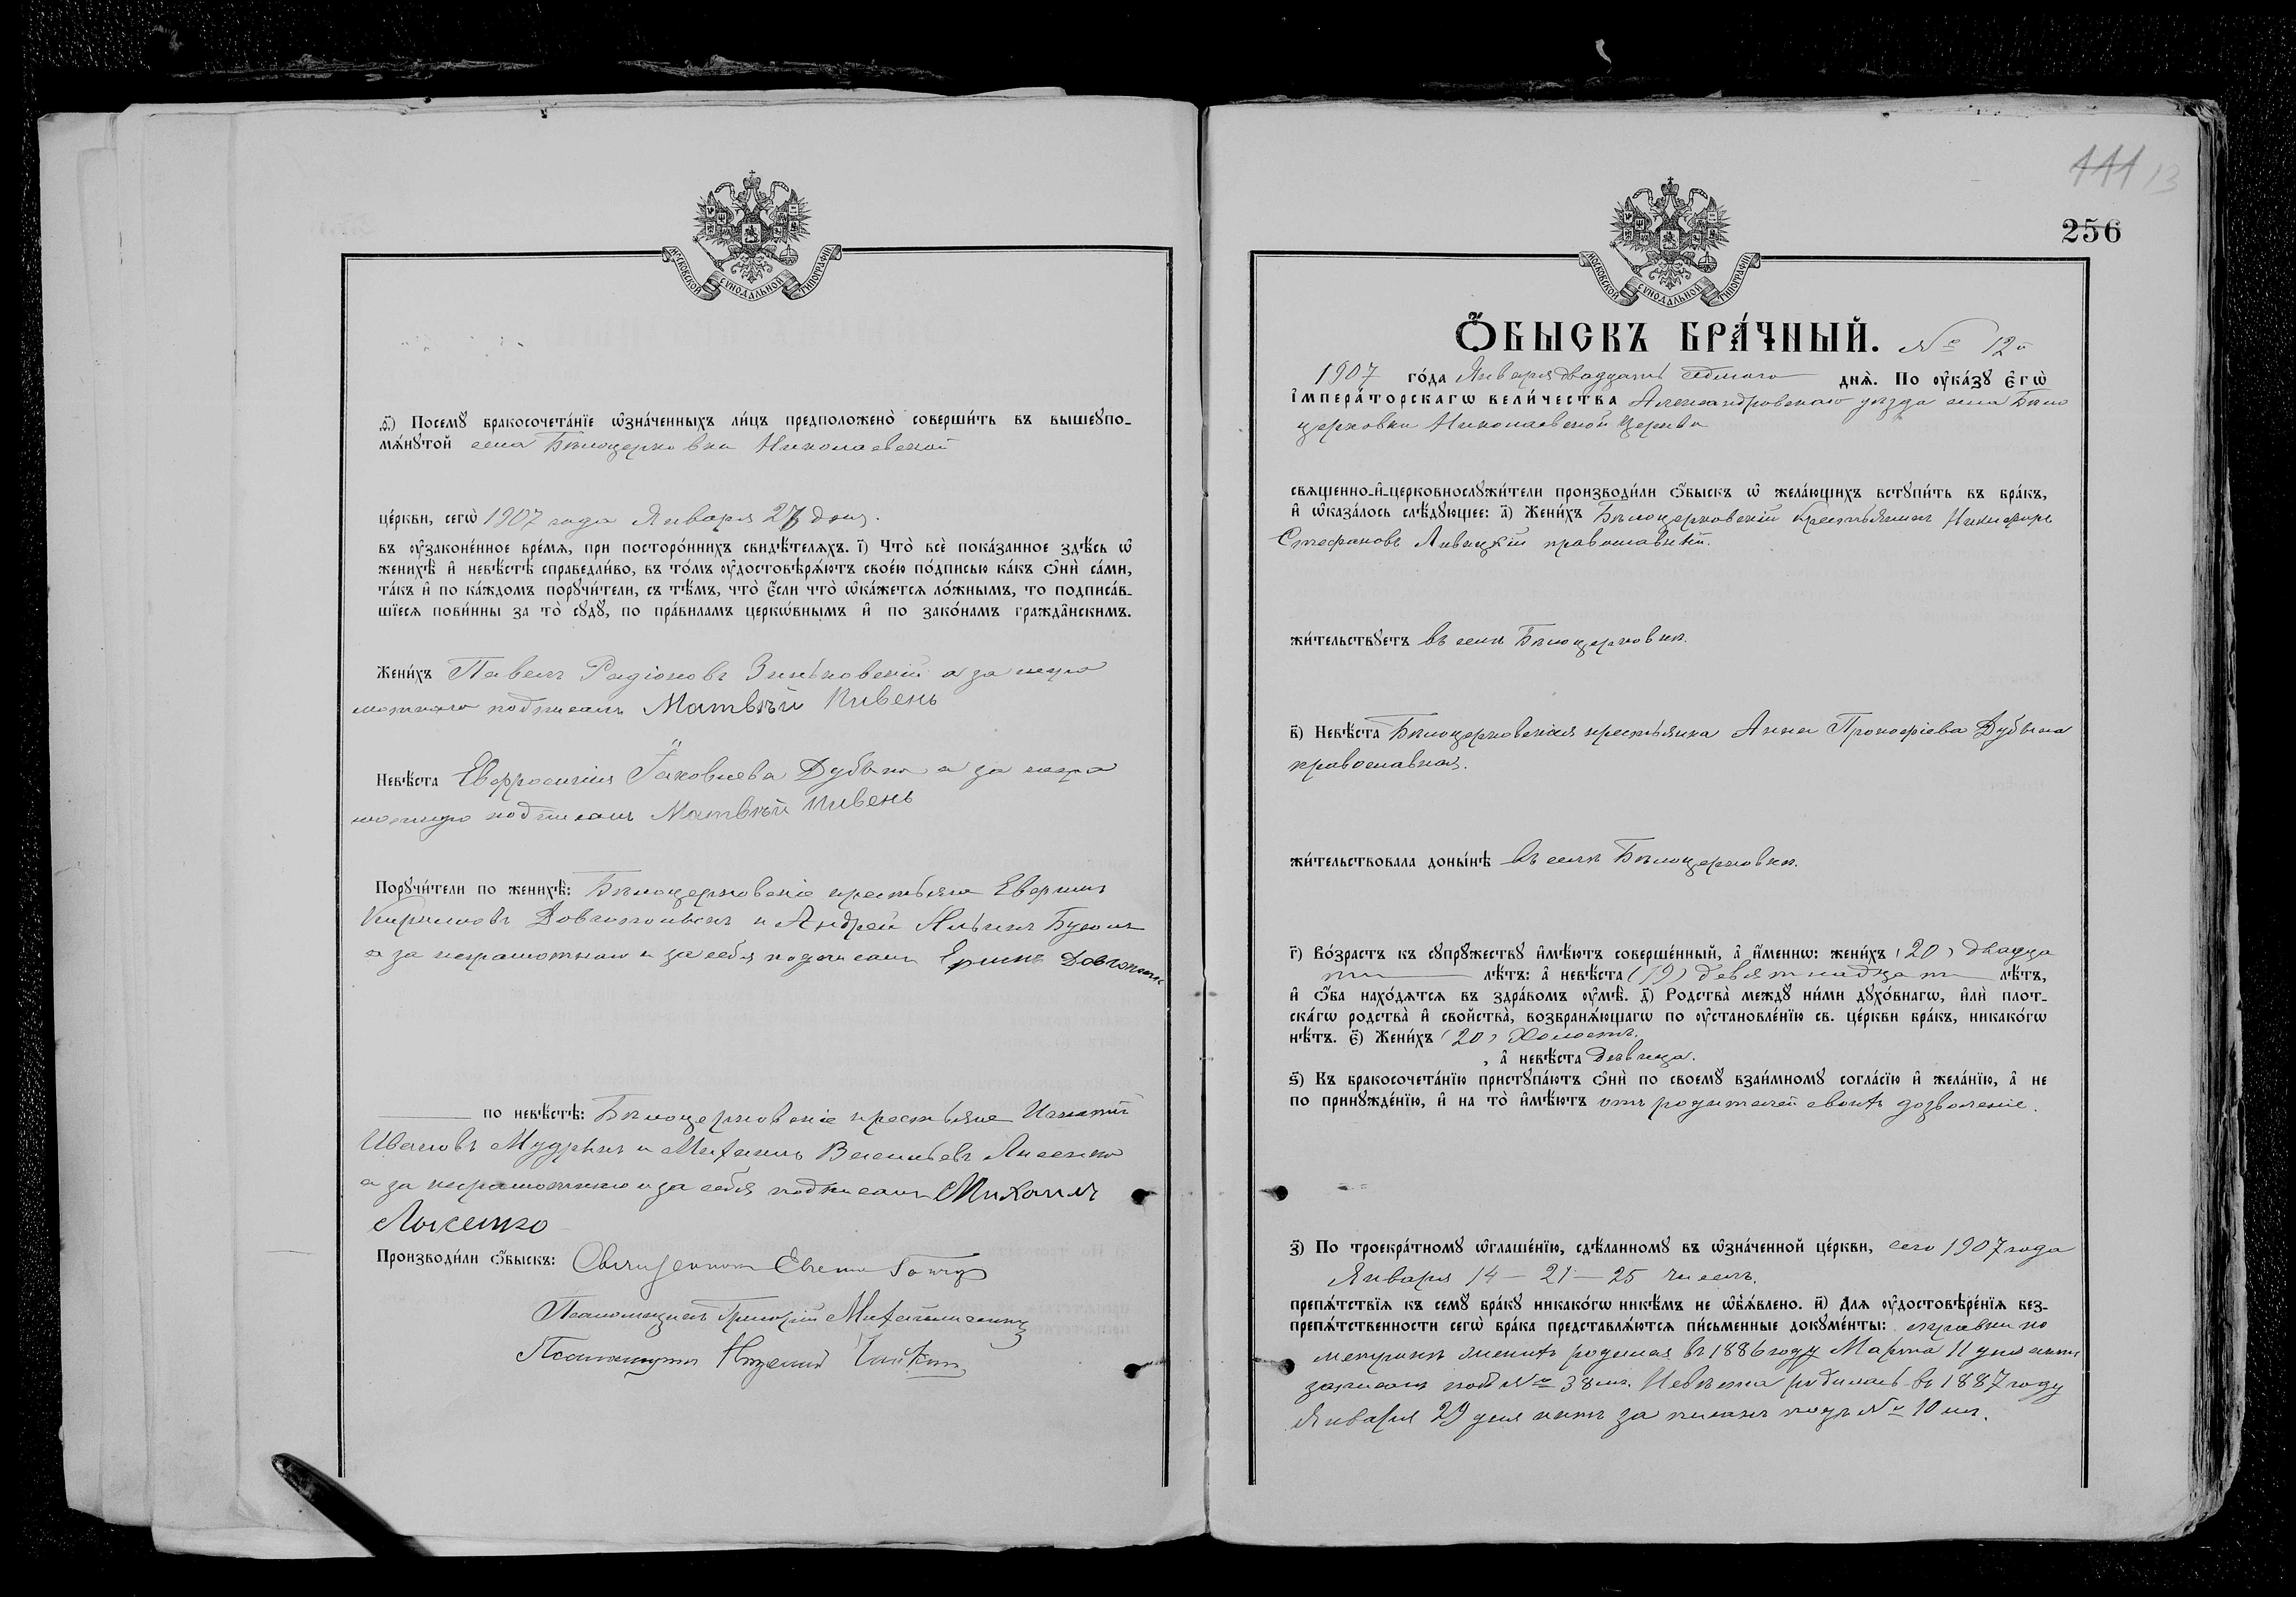 МОСКОВСКОЙ СѴНОДАЛЬНОЙ ТИПОГРАФІИ
Посемꙋ̀ бракосочета́нїе ѡ҆зна́ченныхъ ли́цъ предположено̀ соверши́ть въ вышеꙋпо-
мѧ́нꙋтой села Бѣлоцерковки Николаевской
це́ркви, сегѡ̀ 1907 года Января 27 дня.
въ ᲂу҆зако́ненное вре́мѧ, при посторо́ннихъ свидѣ́телѧхъ. і҃) Что̀ всѐ пока́занное здѣ́сь ѡ҆
женихѣ̀ и҆ невѣ́стѣ справедли́во, въ то́мъ ᲂу҆достовѣрѧ́ютъ свое́ю по́дписью ка́къ ѻ҆нѝ са́ми,
та́къ и҆ по ка́ждомъ порꙋчи́тели, съ тѣ́мъ, что̀ є҆́сли что̀ ѡ҆ка́жетсѧ ло́жнымъ, то подписа́в-
шїесѧ пови́нны за то̀ сꙋдꙋ̀, по пра́виламъ церко́внымъ и҆ по зако́намъ гражда́нскимъ.
Жени́хъ Павелъ Радіоновъ Зиньковскій а за негра
мотнаго подписалъ Матвѣй Пивень
Невѣ́ста Евфросинія Іаковлева Дубына а за негра
мотную подписалъ Матвѣй Пивень
Порꙋчи́тели по женихѣ̀: Бѣлоцерковскіе крестьяне
Кирилловъ и Андрей Ильинъ
а за неграмотнаго и за себя подписалъ
по невѣ́стѣ: Бѣлоцерковскіе крестьяне Игнатій
Ивановъ Мудрыкъ и Михаилъ Васильевъ Лысенко
а за неграмотнаго и за себя подписалъ Михаилъ
Лысенко
Производи́ли ѻ҆́быскъ: Священникъ
Псаломщикъ Григорій
111 13
256
МОСКОВСКОЙ СѴНОДАЛЬНОЙ ТИПОГРАФІИ
Ѻ҆́БЫСКЪ БРА́ЧНЫЙ. № 12й
1907 го́да Января двадцать седмого днѧ̀. По ᲂу҆ка́зꙋ Є҆гѡ̀
і҆мпера́торскагѡ вели́чества Александровскаго уѣзда села Бѣло
церковки Николаевской Церкви
свѧщенно-и҆-церковнослꙋжи́тели производи́ли ѻ҆́быскъ ѡ҆ жела́ющихъ встꙋпи́ть въ бра́къ,
и҆ ѡ҆каза́лось слѣ́дꙋющее: а҃) Жени́хъ Бѣлоцерковскій крестьянинъ Никифоръ
Стефановъ Ливицкій православный.
жи́тельствꙋетъ въ селѣ Бѣлоцерковкѣ.
в҃) Невѣ́ста Бѣлоцерковская крестьянка Анна Прокофіева Дубына
православная.
жи́тельствовала доны́нѣ въ селѣ Бѣлоцерковкѣ.
г҃) Во́зрастъ къ сꙋпрꙋ́жествꙋ и҆мѣ́ютъ соверше́нный, а҆ и҆́меннѡ: жени́хъ (20) двадца
ти лѣ́тъ: а҆ невѣ́ста (19) девятнадцати лѣ́тъ,
и҆ ѻ҆́ба нахо́дѧтсѧ въ здра́вомъ ᲂу҆мѣ̀. д҃) Родства̀ междꙋ̀ ни́ми дꙋхо́внагѡ, и҆лѝ плот-
ска́гѡ родства̀ и҆ сво́йства̀, возбранѧ́ющагѡ по ᲂу҆становле́нїю св. це́ркви бра́къ, никако́гѡ
нѣ́тъ. є҃) Жени́хъ (20) Холостъ.
, а҆ невѣ́ста дѣвица.
ѕ҃) Къ бракосочета́нїю пристꙋпа́ютъ ѻ҆нѝ по своемꙋ̀ взаи́мномꙋ согла́сїю и҆ жела́нїю, а҆ не
по принꙋжде́нїю, и҆ на то̀ и҆мѣ́ютъ отъ родителей своихъ дозволеніе.
з҃) По троекра́тномꙋ ѡ҆глаше́нїю, сдѣ́ланномꙋ въ ѡ҆зна́ченной це́ркви, сего 1907 года
Января 14 - 21 - 25 числъ.
препѧ́тствїѧ къ семꙋ̀ бра́кꙋ никако́гѡ никѣ́мъ не ѡ҆б̾ѧ́влено. и҃) Для ᲂу҆достовѣре́нїѧ без-
препѧ́тственности сегѡ̀ бра́ка представлѧ́ютсѧ пи́сьменные докꙋме́нты: справки по
метрикѣ женихъ родился въ 1886 году Марта 11 дня
записанъ подъ № 38мъ. Невѣста родилась въ 1887 году
Января 29 дня подъ № 10мъ.